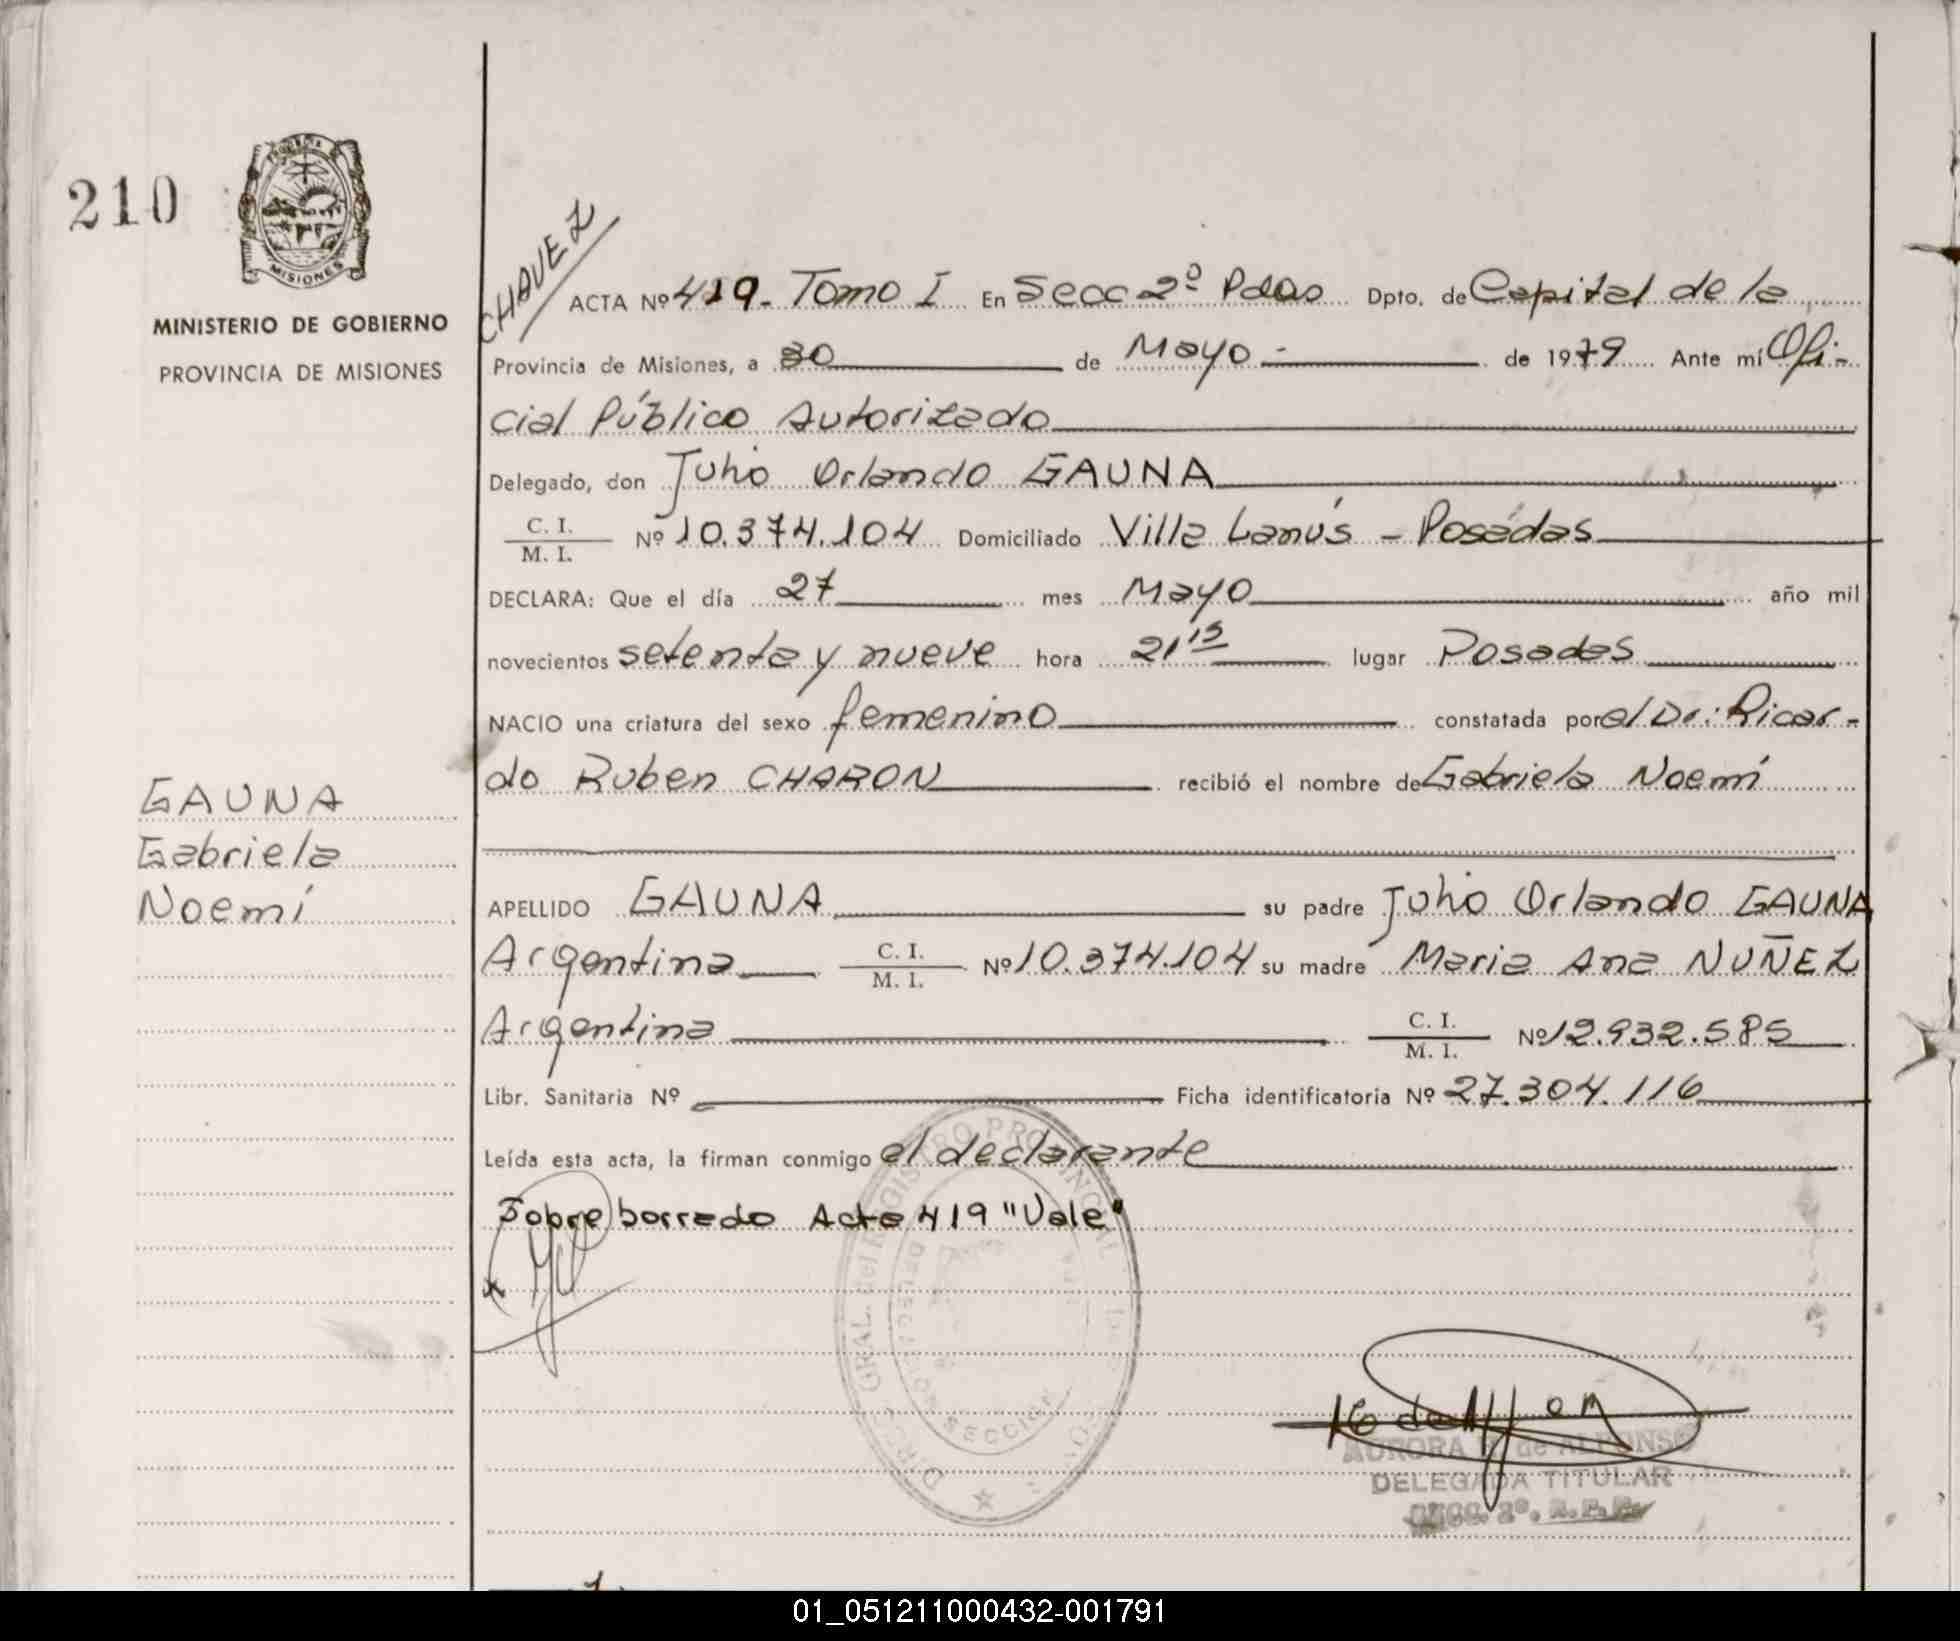 210
MISIONES
MINISTERIO DE GOBIERNO
PROVINCIA DE MISIONES
CHAVEZ
ACTA Nº 419. Tomo I En Secc 2º Pdas Dpto. de Capital de la
Provincia de Misiones, a 30 de Mayo - de 1979 Ante mí Ofi-
cial Público Autorizado
Delegado, don Julio Orlando GAUNA
C. I.
M. I. Nº 10.374.104 Domiciliado Villa Lanús - Posadas
DECLARA: Que el día 27 mes Mayo año mil
novecientos setenta y nueve hora 21 15 lugar Posadas
NACIO una criatura del sexo femenino constatada por el Dr: Ricar-
do Ruben CHARON recibió el nombre de Gabriela Noemí
GAUNA
Gabriela
Noemí
APELLIDO GAUNA su padre Julio Orlando GAUNA
Argentina C. I. M. I. Nº 10.374.104 su madre Maria Ana NUÑEZ
Argentina C. I. M. I. Nº 12.932.585
Libr. Sanitaria Nº Ficha identificatoria Nº 27.304.116
Leída esta acta, la firman conmigo el declarante
Sobre borrado Acta 419 "Vale"
GRAL. del REGISTRO PROVINCIAL
SECCION
AURORA de ALFONSO
DELEGADA TITULAR
SECC. 2º. R.P.P.
01_051211000432-001791